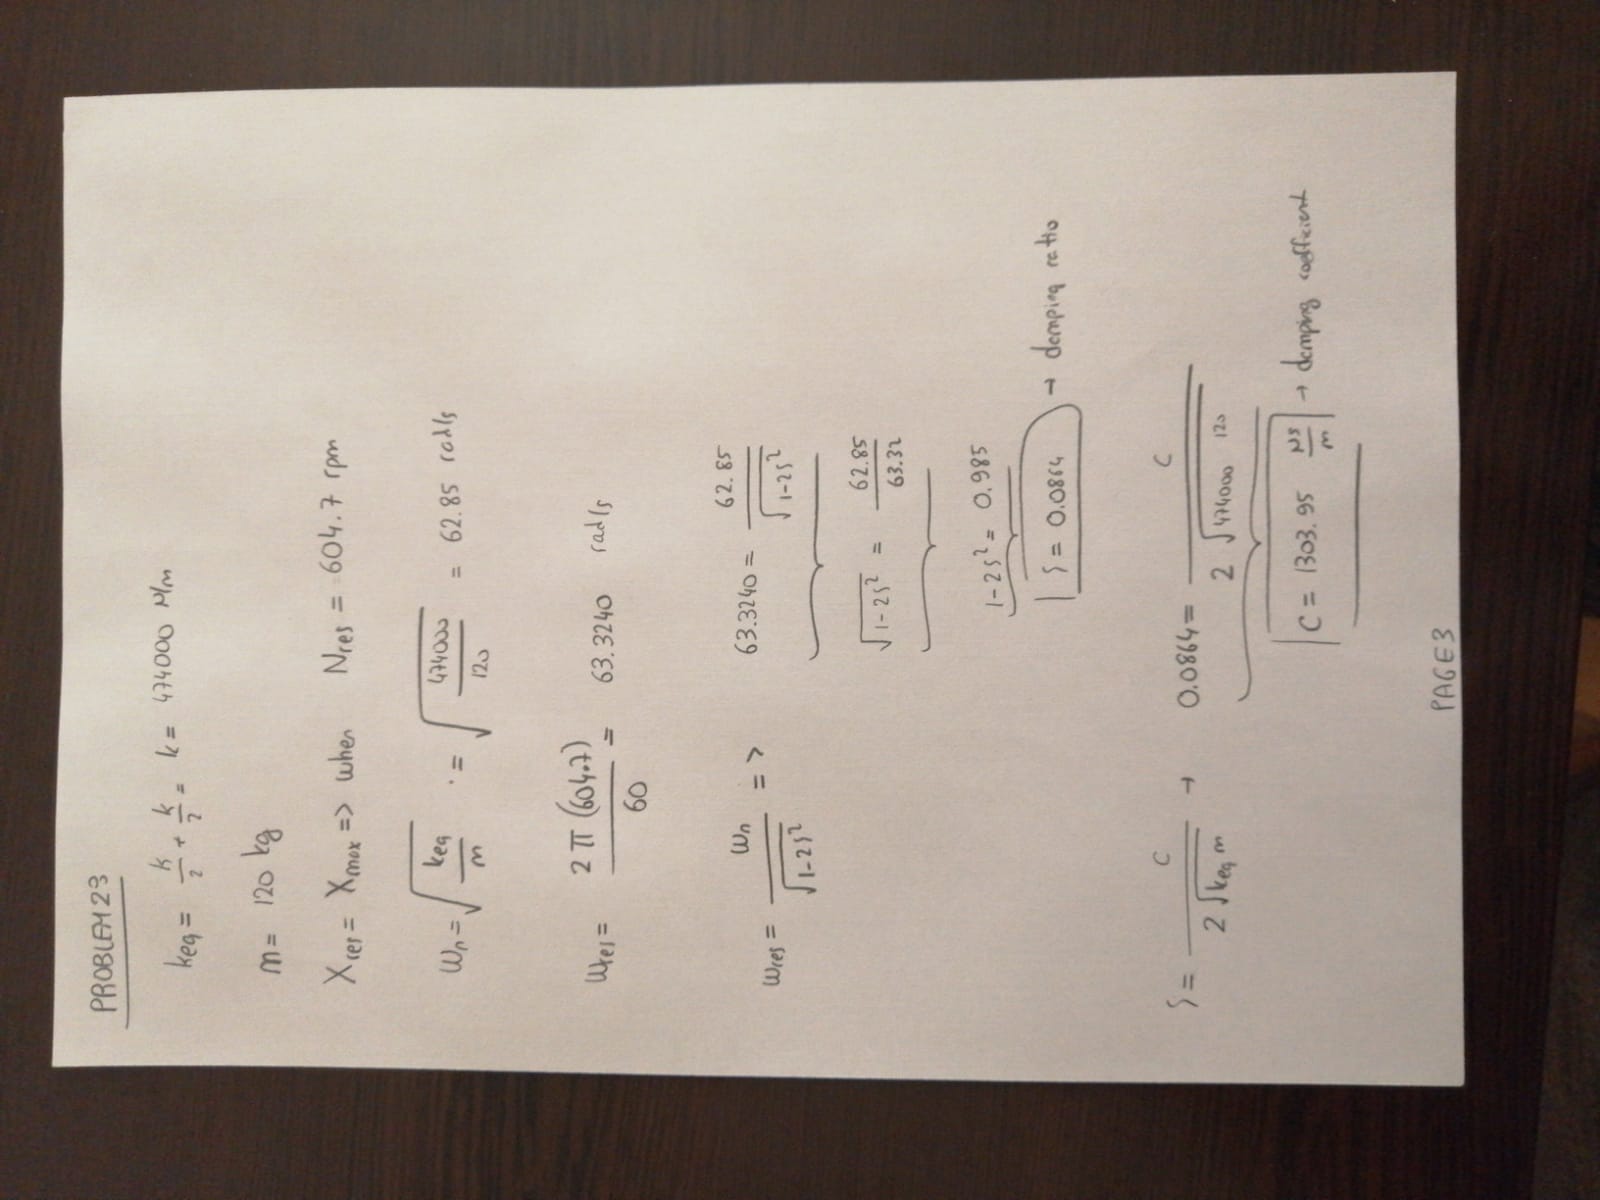 PROBLEM 29
keq = k/2 + k/2 = k = 474000 N/m
m = 120 kg
Xres = Xmax => when Nres = 604.7 rpm
ωn = √(keq/m) = √(474000/120) = 62.85 rad/s
ωres = 2π(604.7)/60 = 63.3240 rad/s
ωres = ωn/√(1-2ζ²) => 63.3240 = 62.85/√(1-2ζ²)
√(1-2ζ²) = 62.85/63.32
1-2ζ² = 0.985
ζ = 0.0864 → damping ratio
ζ = C/(2√(keq m)) → 0.0864 = C/(2√(474000 120))
C = 1303.95 Ns/m → damping coefficient
PAGE 3